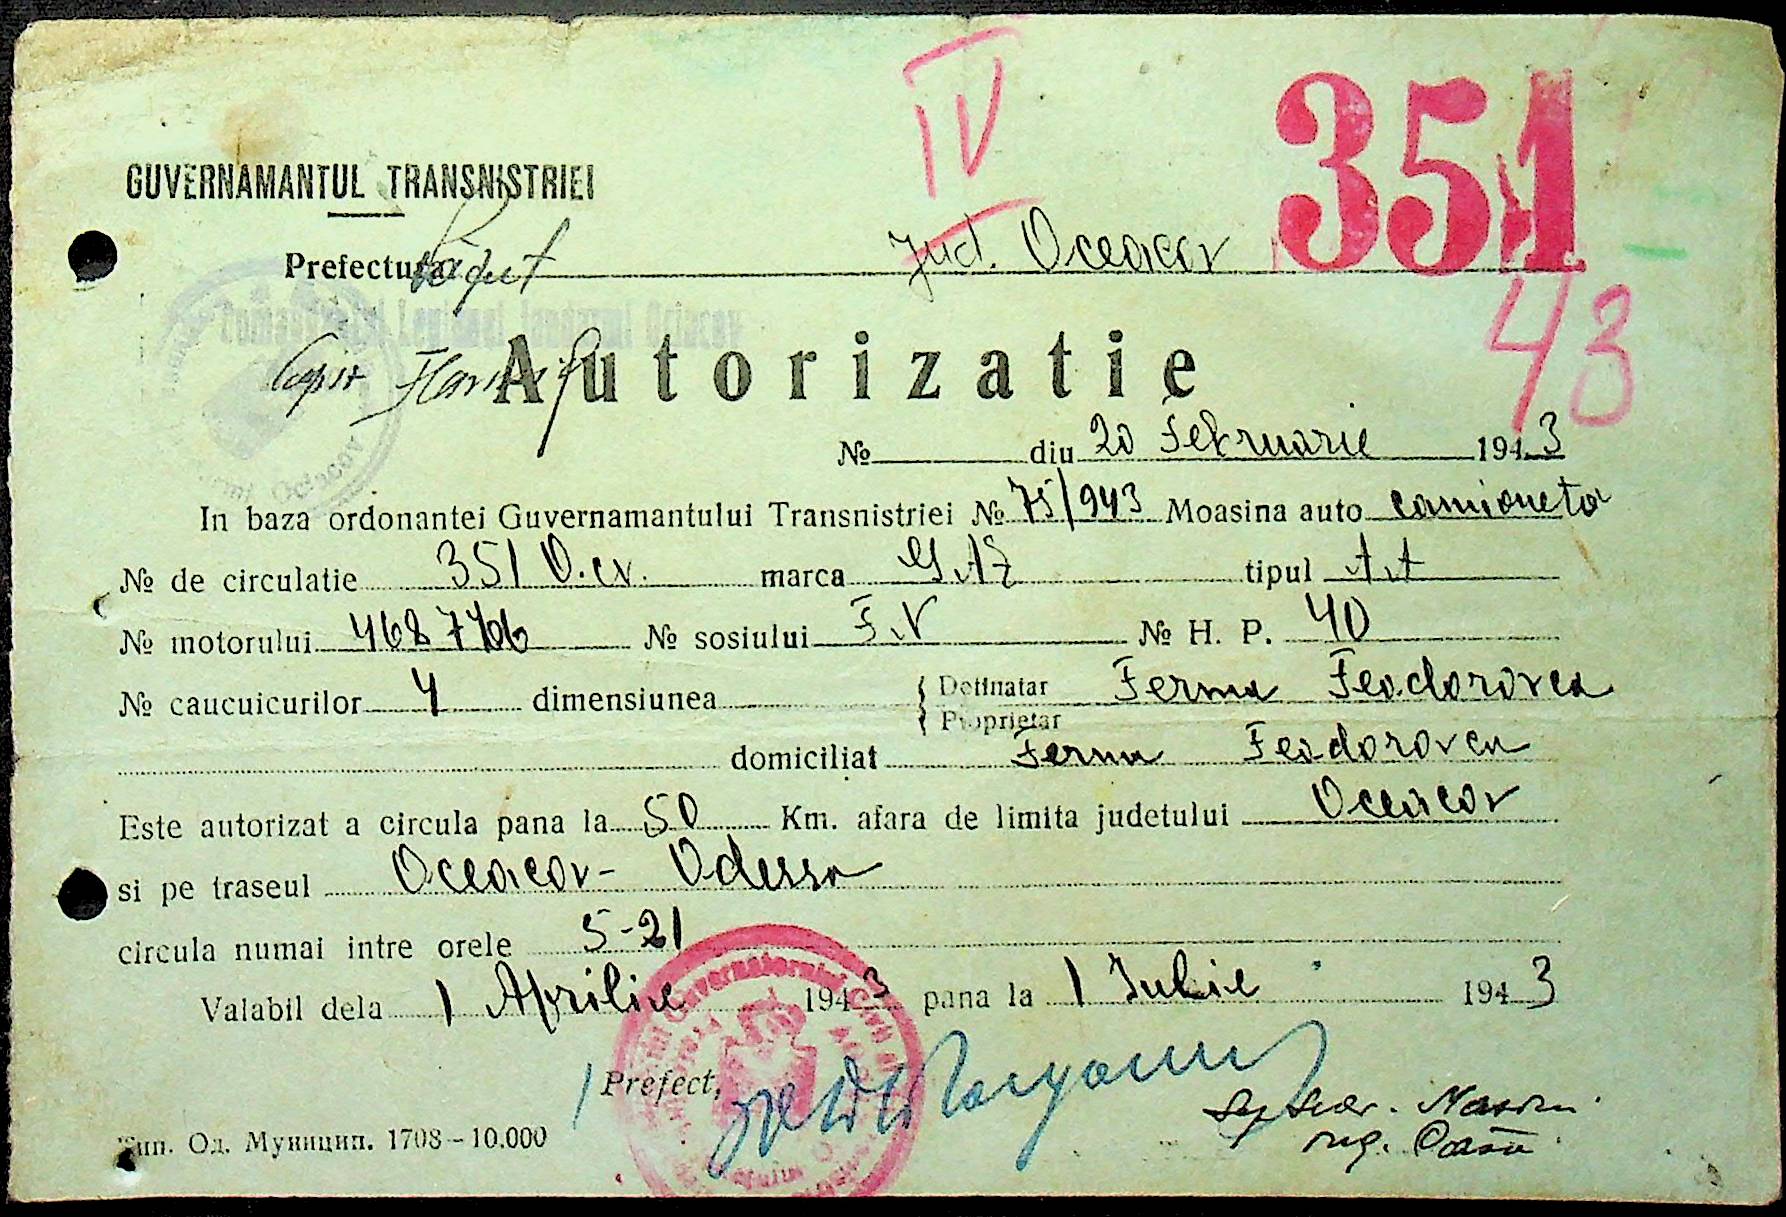 IV 351
GUVERNAMANTUL TRANSNISTRIEI
Prefectura Jud. Oceacov
43
Comandantul Legiunei Jandarmi Ociacov
Autorizatie
№ diu 20 Februarie 1943
In baza ordonantei Guvernamantului Transnistriei № 75/943 Moasina auto camioneta
№ de circulatie 351 O.cv. marca GAZ tipul AA
№ motorului 468 7406 № sosiului F.N № H. P. 40
№ caucuicurilor 4 dimensiunea Detinatar Ferma Feodorovca
Proprietar
domiciliat Ferma Feodorovca
Este autorizat a circula pana la 50 Km. afara de limita judetului Oceacov
si pe traseul Oceacov- Odessa
circula numai intre orele 5-21
Valabil dela 1 Aprilie 1943 pana la 1 Iulie 1943
Prefect,
Тип. Од. Муницип. 1708-10.000